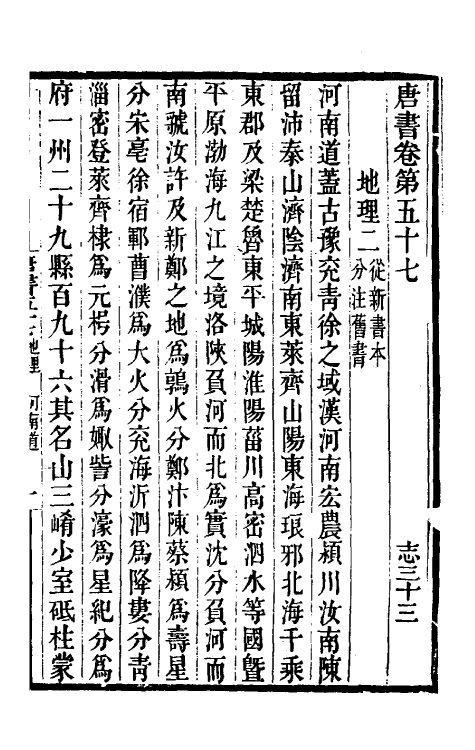 唐書卷第五十七 志三十三
地理二 從新書本分注舊書
河南道蓋古豫兗靑徐之域漢河南宏農潁川汝南陳
留沛泰山濟陰濟南東萊齊山陽東海琅邪北海千乘
東郡及梁楚魯東平城陽淮陽菑川高密泗水等國曁
平原渤海九江之境洛陝負河而北爲實沈分負河而
南虢汝許及新鄭之地爲鶉火分鄭汴陳蔡潁爲壽星
分宋亳徐宿鄆曹濮爲大火分兗海沂泗爲降婁分靑
淄密登萊齊棣爲元枵分滑爲娵訾分濠爲星紀分爲
府一州二十九縣百九十六其名山三崤少室砥柱蒙
唐書五十七 地理 河南道 一